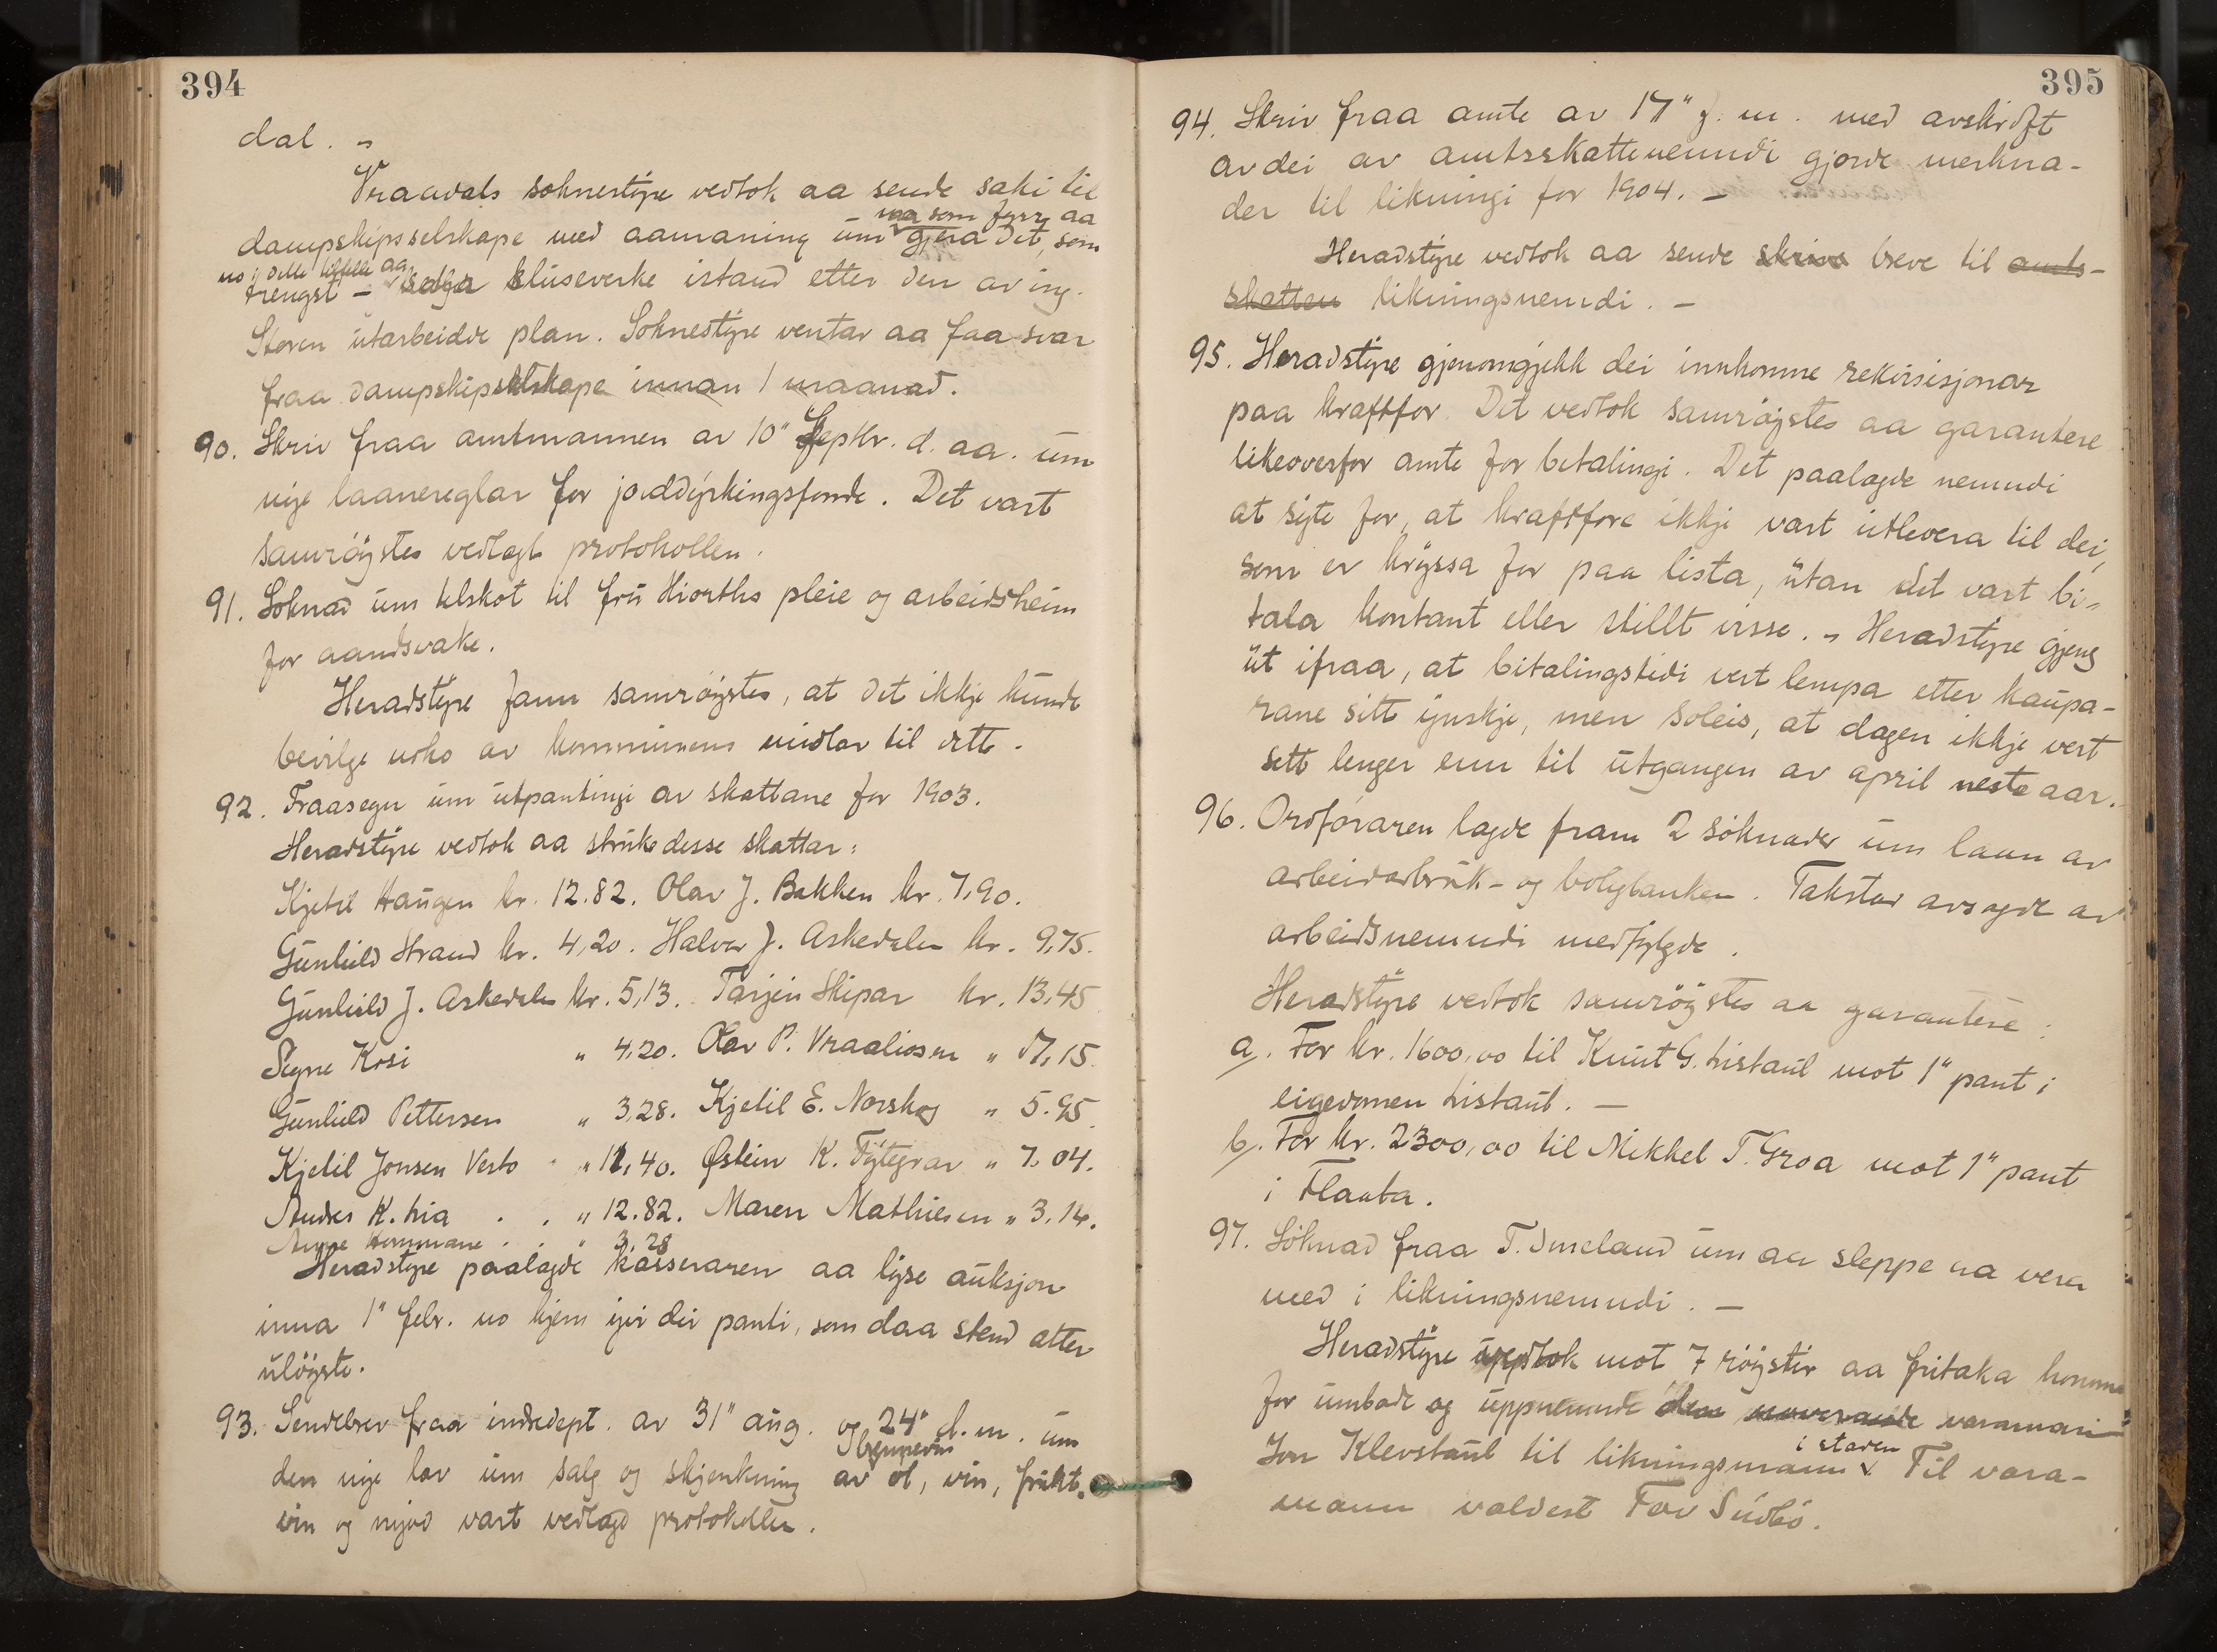 394
dal. –
Vraadals soknestyre vedtok aa sende saki til
naa som fyrr aa
dampskipsselskape med aamaning um gjera det, som
no i dette tilfelle aa
trengst – setja sluseverke istand etter den av ing.
Støren utarbeidde plan. Soknestyre ventar aa faa svar
fraa dampskipselskape innan 1 maanad.
90. Skriv fraa amtmannen av 10" Septbr. d. aa. um
nye laanereglar for jorddyrkingsfonde. Det vart
samrøystes vedlagt protokollen.
91. Søknad um tilskot til fru Hiorths pleie og arbeidsheim
for aandsvake.
Heradstyre fann samrøystes, at det ikkje kunde
bevilge noko av kommunens midlar til dette.
92. Fraasegn um utpantingi av skattane for 1903.
Heradstyre vedtok aa stryke desse skattar:
Kjetil Haugen kr. 12.82. Olav J. Bakken kr. 7,90.
Gunhild Strand kr. 4,20. Halvor J. Askedalen kr. 9,75.
Gunhild J. Askedalen kr. 5,13. Tarjei Skipar kr. 13,45
Signe Kosi " 4,20. Olav P. Vraaliosen " 17,15.
Gunhild Pettersen " 3,28. Kjetil E. Norskog " 5.95.
Kjetil Jonsen Vesto " 11,40. Østein K. Fytegrav " 7.04.
Andres K. Lia . . " 12.82. Maren Mathiesen " 3,14.
Anne Hommane . . " 3,28
Heradstyre paalagde kasseraren aa lyse auksjon
inna 1" febr. no kjem yvi dei panti, som daa stend atter
uløyste.
93. Sendebrev fraa indredept. av 31" aug. og 24" d. m. um
brennevin
den nye lov um salg og skjenkning av øl, vin, frukt-
vin og mjød vart vedlagd protokollen.
395
94. Skriv fraa amte av 17" f. m. med avskrift
av dei av amtsskattenemndi gjorde merkna-
der til likningi for 1904. –
Heradstyre vedtok aa sende skrive breve til amts-
skatten likningsnemdi. –
95. Heradstyre gjenomgjekk dei innkomne rekvisisjonar
paa kraftfor. Det vedtok samrøystes aa garantere
likeoverfor amte for betalingi. Det paalagde nemndi
at syte for, at kraftfore ikkje vart utlevera til dei,
som er kryssa for paa lista, utan det vart bi-
tala kontant eller stillt visse. – Heradstyre gjeng
ut ifraa, at bitalingstidi vert lempa etter kaupa-
rane sitt ynskje, men soleis, at dagen ikkje vert
sett lenger enn til utgangen av april neste aar.
96. Ordføraren lagde fram 2 søknader um laan av
arbeidarbruk- og boligbanken. Takstar avsagde av
arbeidsnemndi medfylgde.
Heradstyre vedtok samrøystes aa garantere:
a/. For kr. 1600,00 til Knut G. Listaul mot 1" pant i
eigedomen Listaul. –
b/. For kr. 2300,00 til Mikkel T. Groa mot 1" pant
i Flauta.
97. Søknad fraa T. Smeland um aa sleppe aa vera
med i likningsnemndi. –
Heradstyre vedtok mot 7 røyster aa fritaka honom
for umbode og uppnemnde den noverande varamann
i staden
Jon Klevstaul til likningsmann. Til vara-
mann valdest Tov Sudbø.